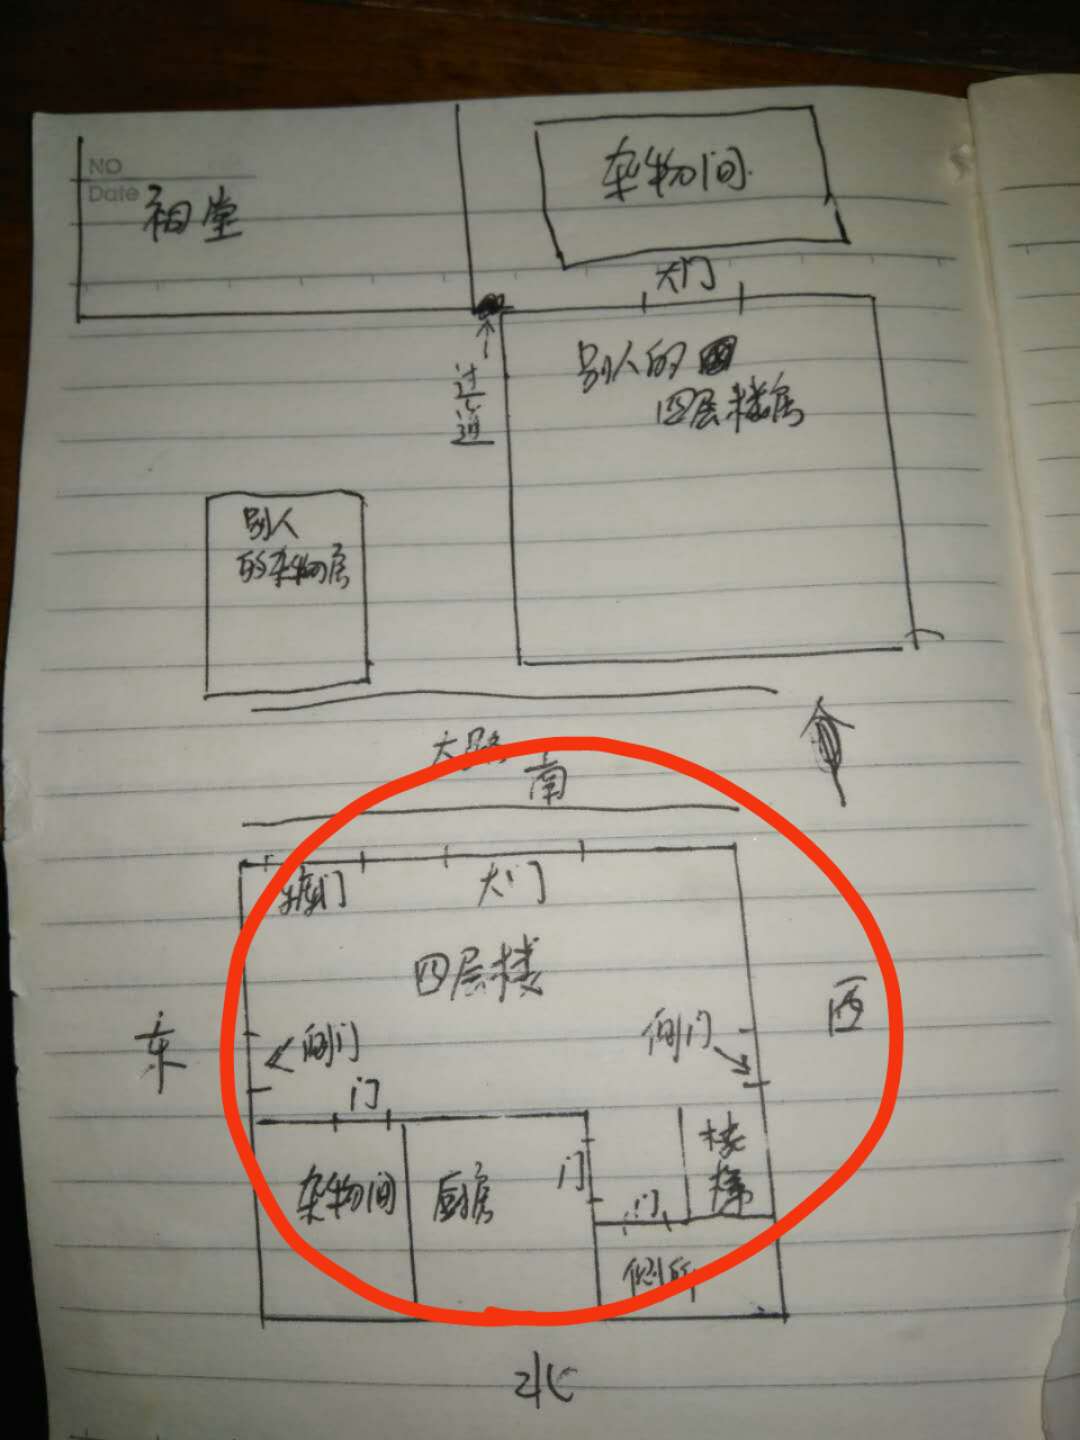 NO
Date
祠堂
杂物间
大门
过道
别人的
四层楼房
别人
的杂物房
大路
南
大门
四层楼
东
西
侧门
侧门
门
杂物间
厨房
门
楼梯
门
厕所
北